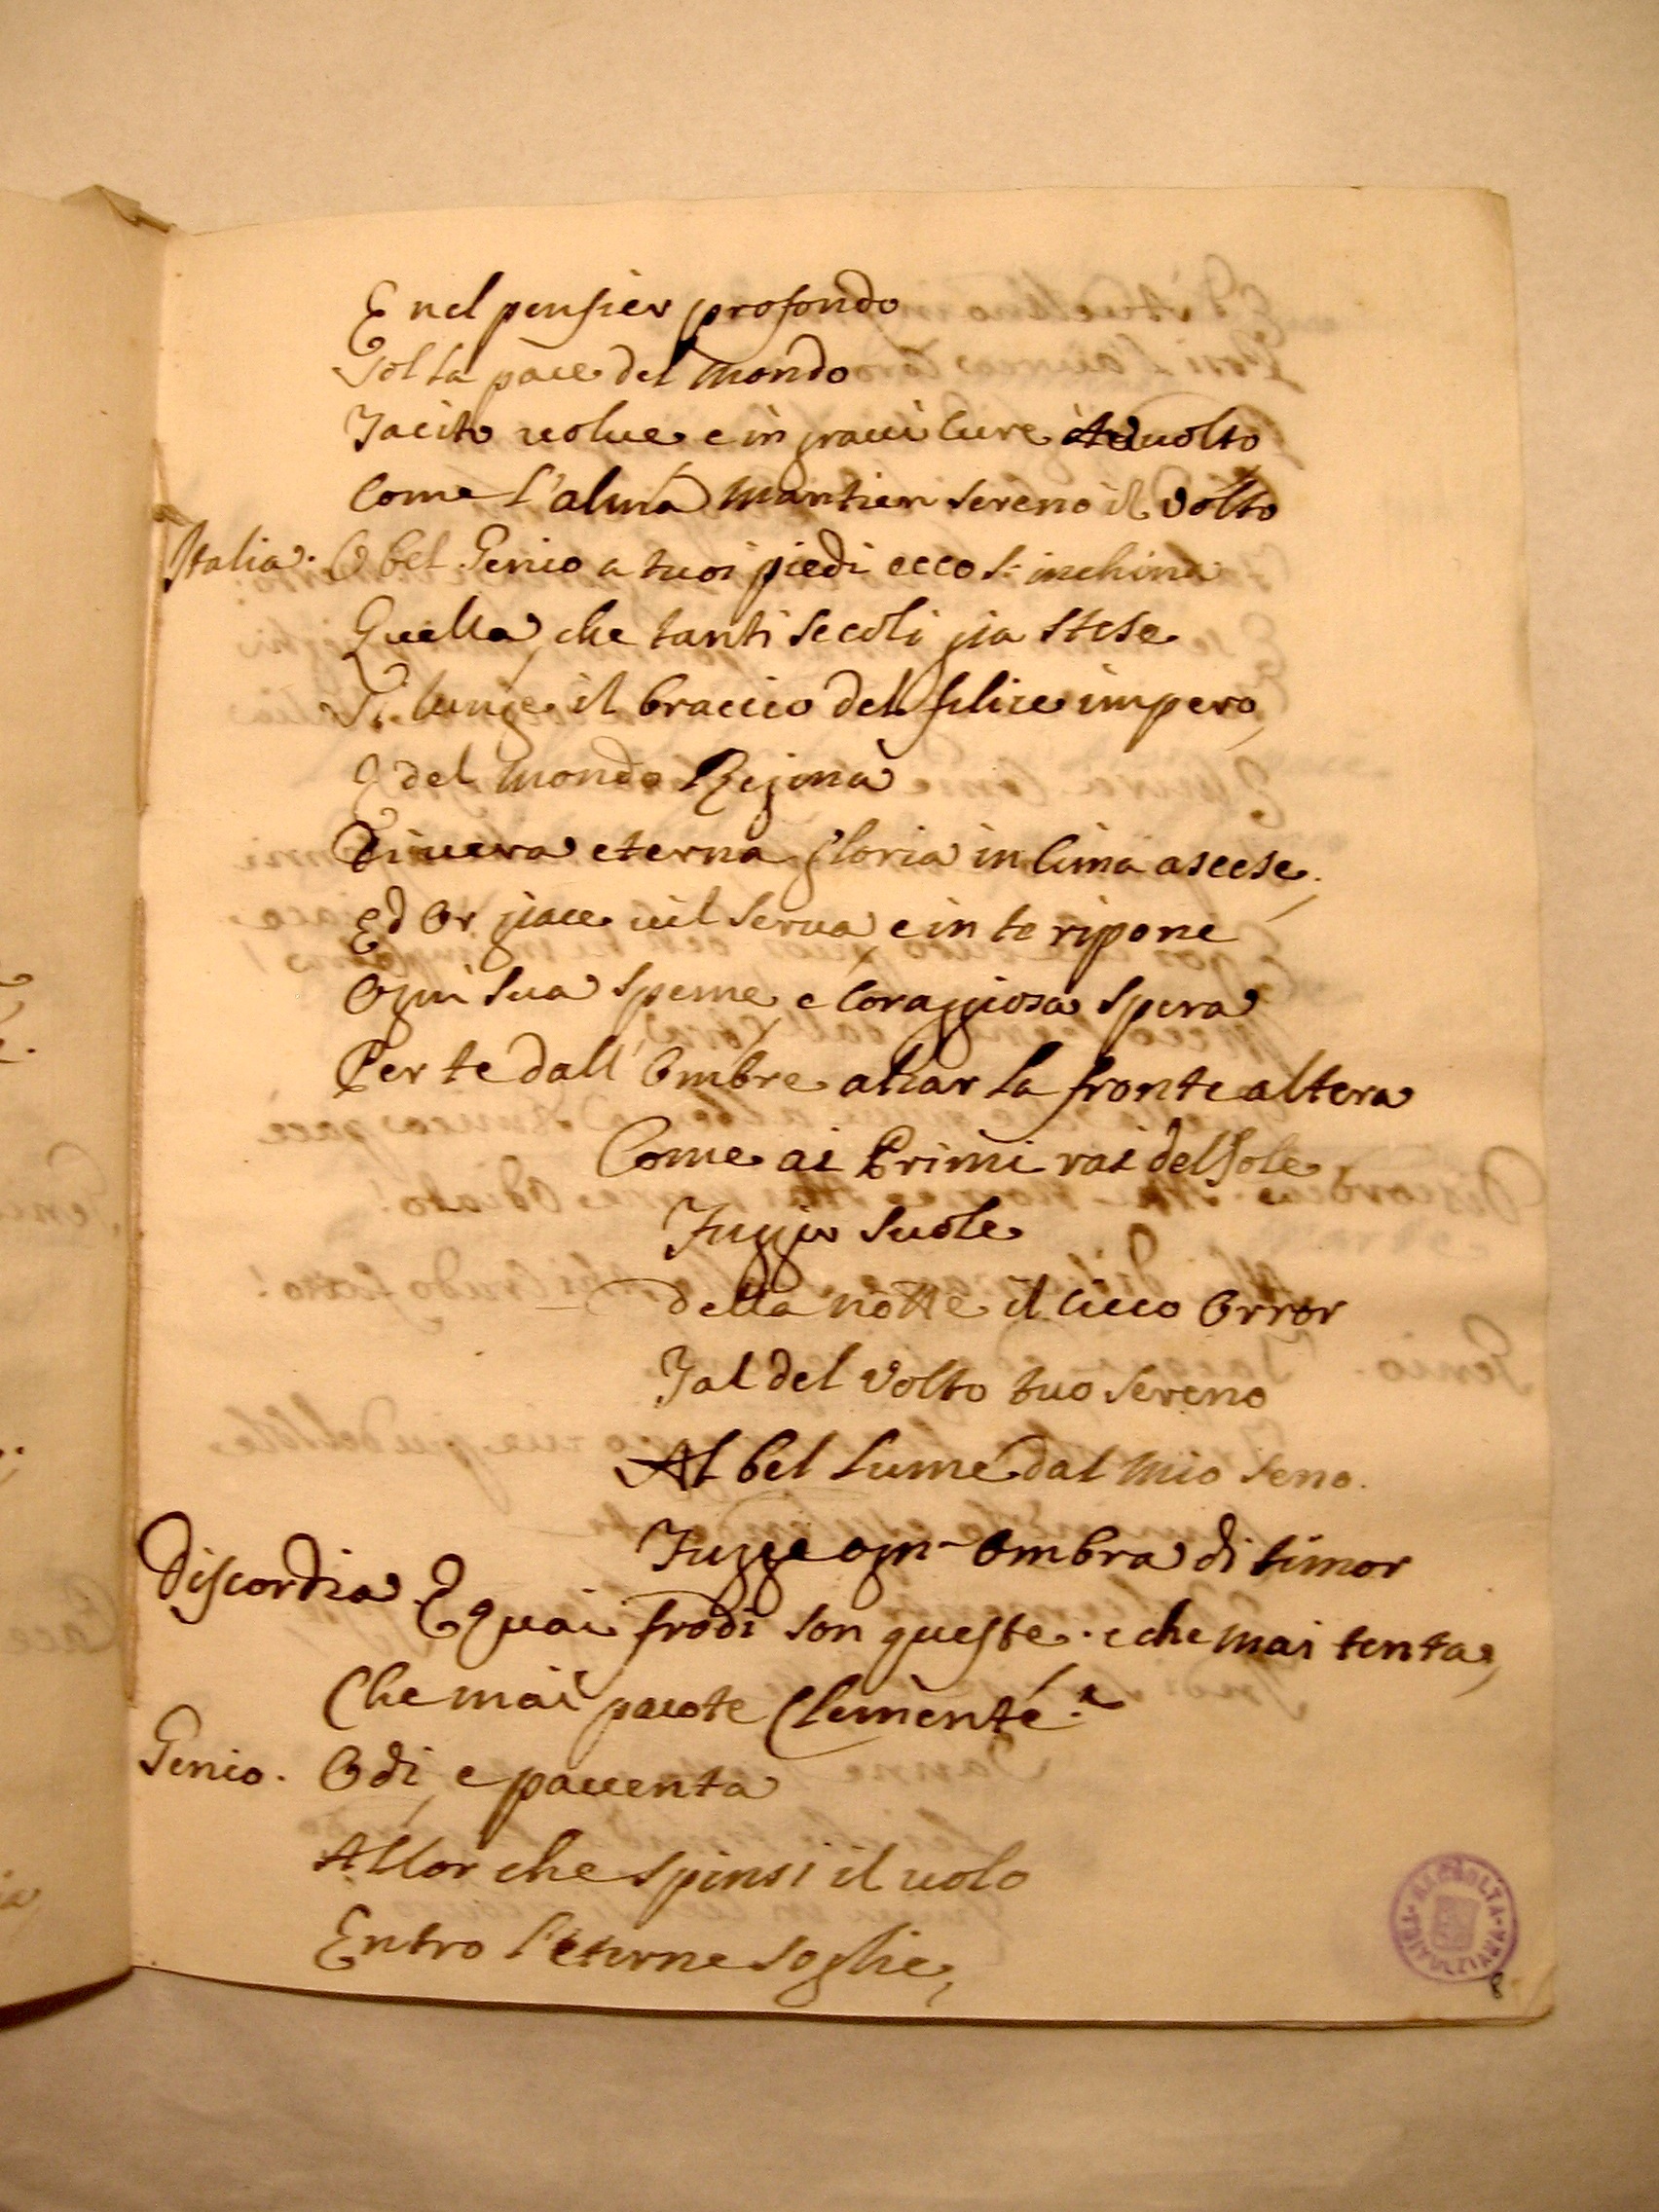 E nel pensier profondo
Sol la pace del mondo
Tacito volue e in graui cure inuolto
Come l'alma mantien sereno il Volto
Italia. O bel Genio a tuoi piedi ecco s'inchina
Quella, che tanti secoli gia stese
Si lunge il braccio del felice impero,
E del mondo Regina
Di uera eterna gloria in cima ascese,
Ed or giace uil serua, e in te ripone
Ogni sua speme, e coraggiosa spera
Per te dall'ombre alzar la fronte altera
Come ai Primi rai del Sole
Fuggir suole
della notte il cieco orror
Tal del Volto tuo sereno
Al bel lume dal mio seno.
Fugge ogn' ombra di timor
Discordia E quai frodi son queste. e che mai tenta,
Che mai puote Clemente?
Genio. Odi, e pauenta
Allor che spinsi il uolo
Entro l'eterne soglie,
RACCOLTA
8